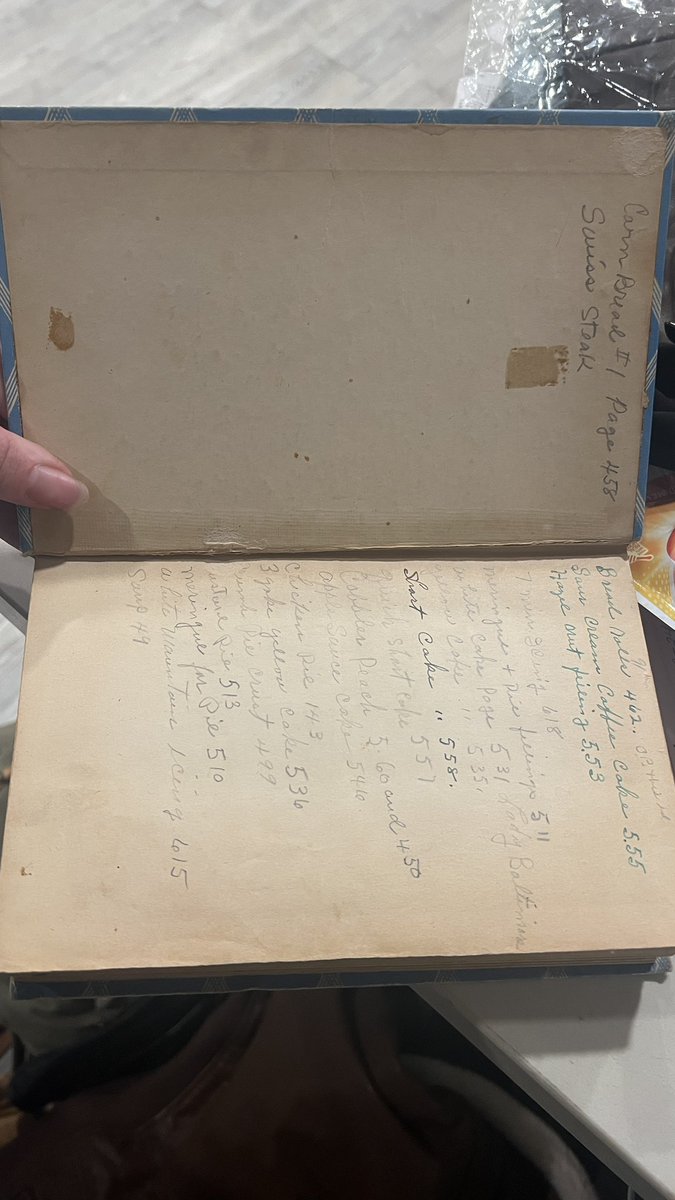 Corn Bread II / Page 458
Swiss Steak
Bread Rolls 462.
Sour Cream Coffee Cake 5.55
Haze nut filling 5.53
7 min icing 618
meringue + Pie fillings 511
white Cake Page 531 Lady Baltimore
yellow Cake " 535.
Short Cake " 558.
Short cake 557
Cobbler Peach 5.60 and 450
apple Sauce Cake 546
Chicken Pie 143
3 yoke yellow Cake 536
Crumb Pie Crust 499
Pie 513
meringue for Pie 510
White Mountain Icing 615
Soup 49